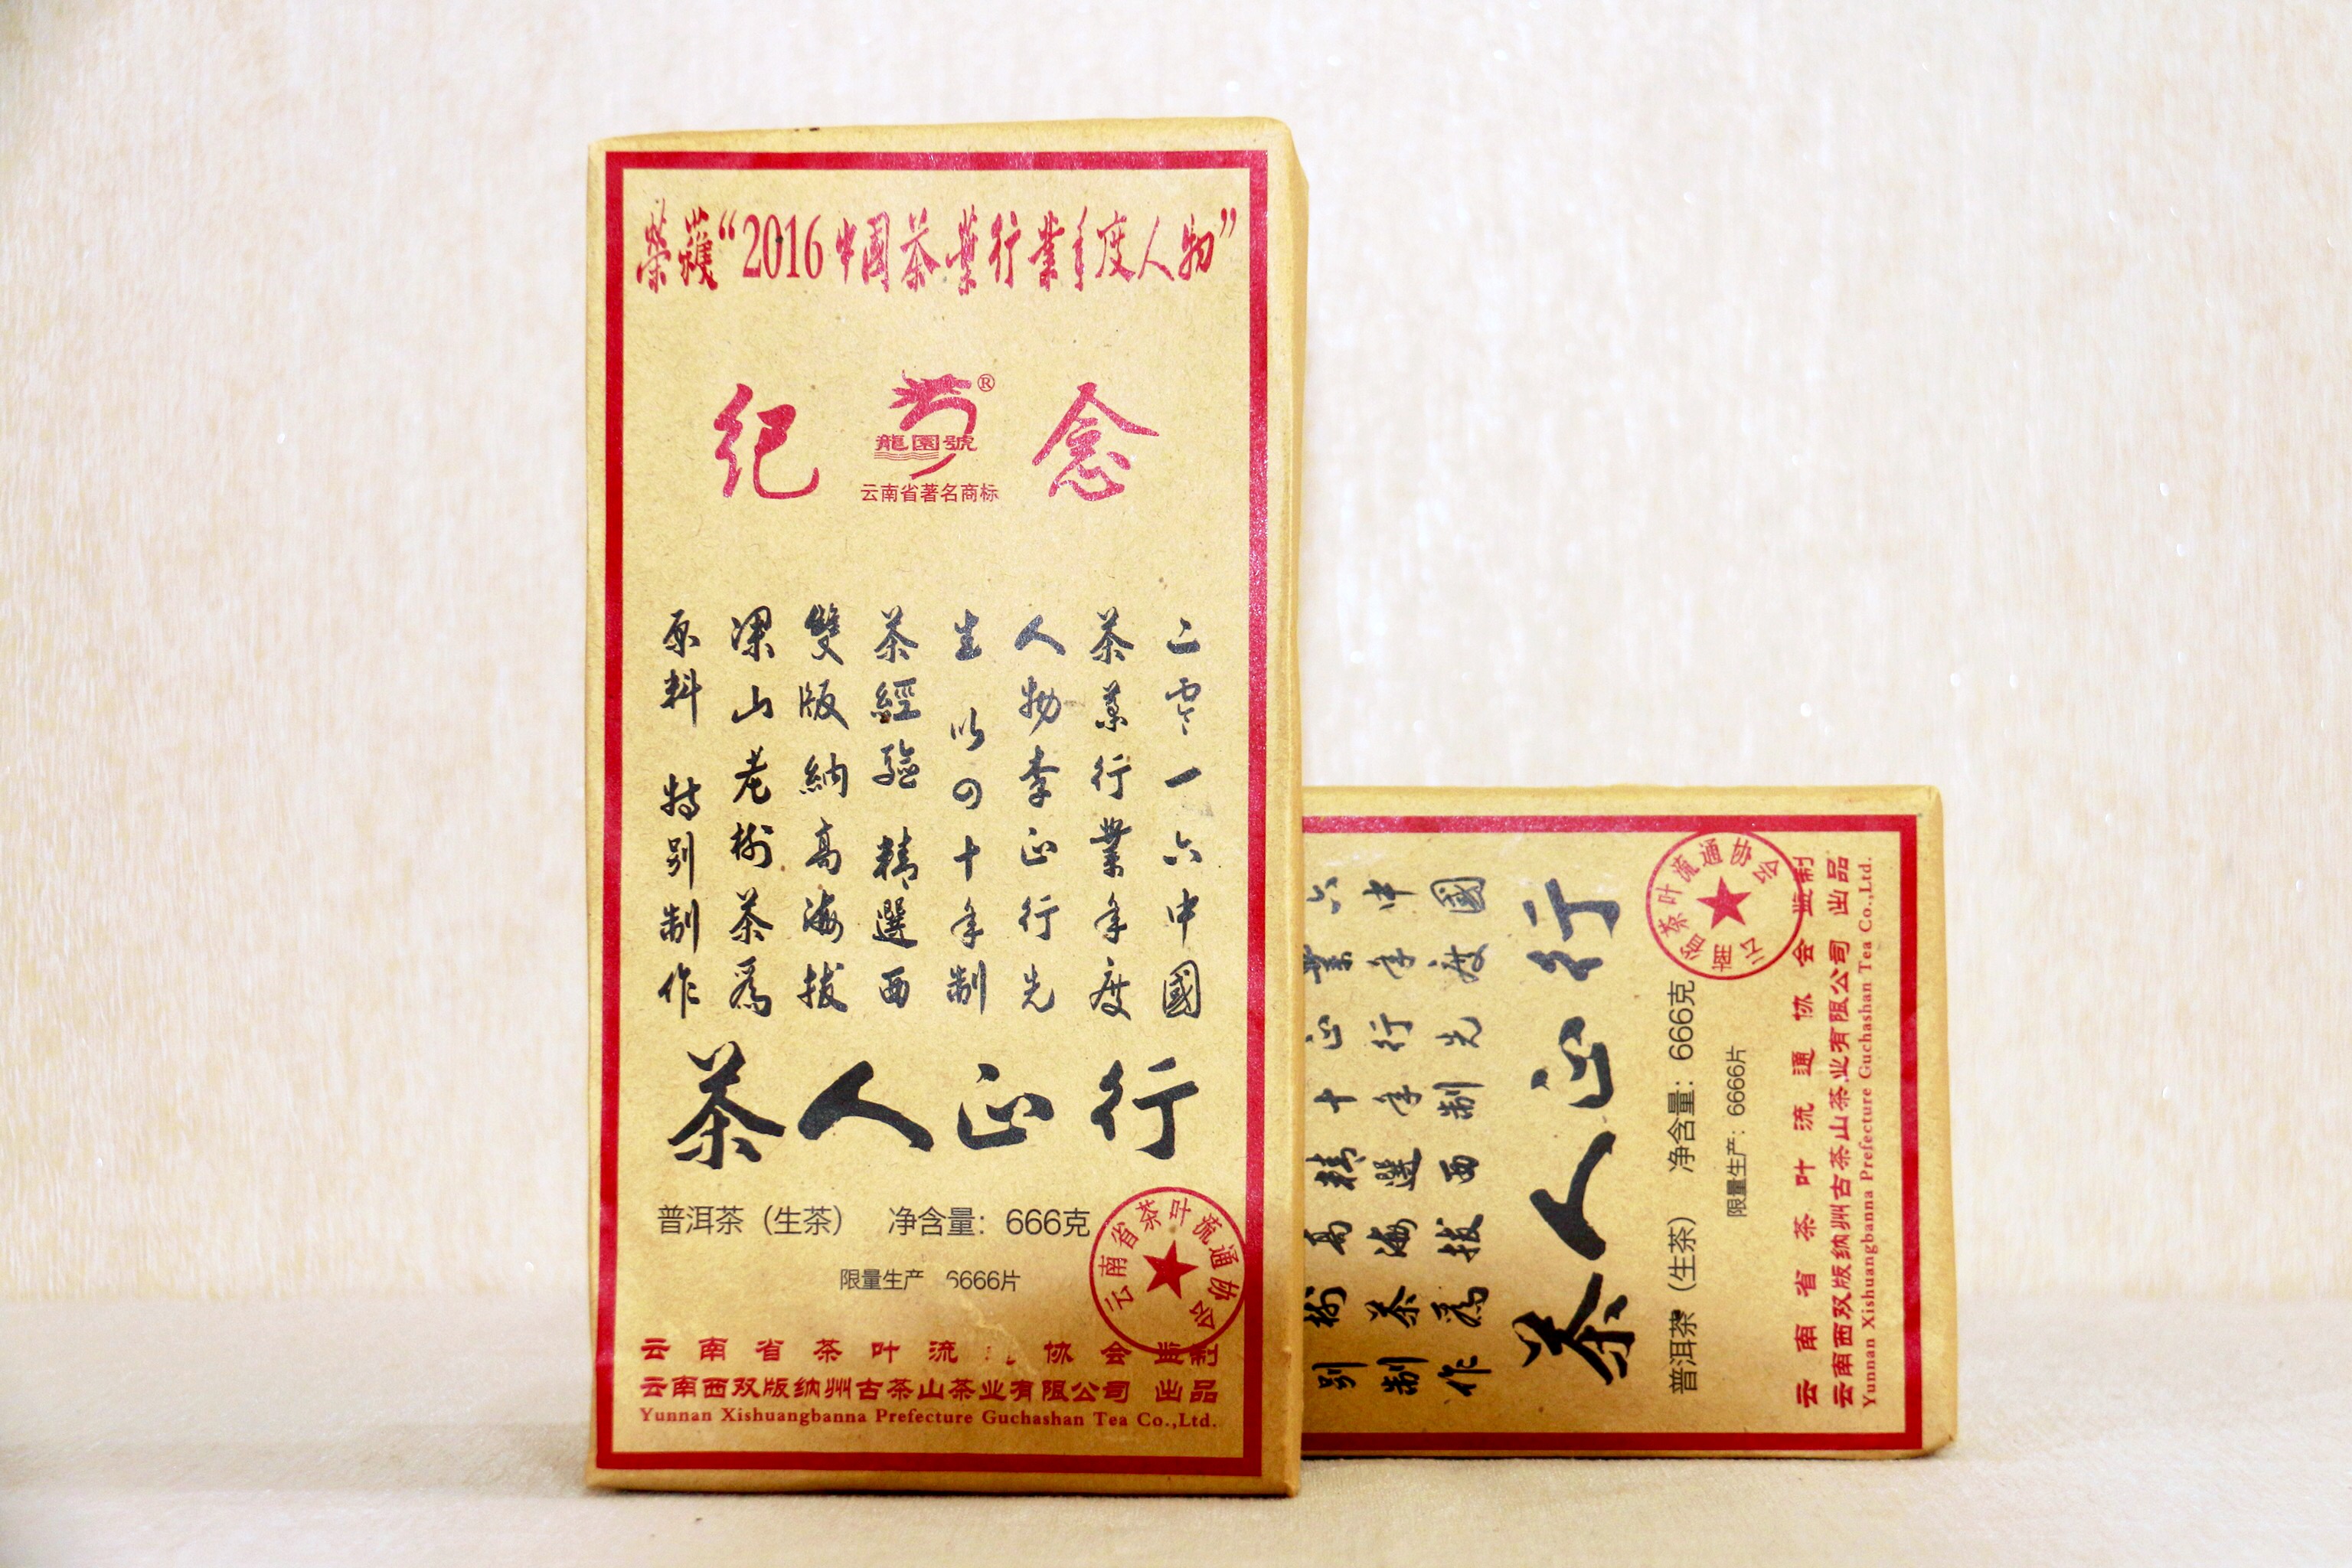 榮獲“2016中國茶葉行業年度人物”
紀
念
®
龍園號
云南省著名商标
二零一六中國
茶葉行業年度
人物李正行先
生以四十年制
茶經驗精選西
雙版納高海拔
梁山老樹茶為
原料特別制作
茶人正行
普洱茶（生茶） 净含量：666克
限量生产 6666片
云南省茶叶流通协会
云南省茶叶流 协会监制
云南西双版纳州古茶山茶业有限公司 出品
Yunnan Xishuangbanna Prefecture Guchashan Tea Co.,Ltd.
六中國
業年度
正行先
十年制
精選西
高海拔
樹茶為
別制作
茶人正行
普洱茶（生茶） 净含量：666克
限量生产：6666片
云南省茶叶流通协会
云南省茶叶流通协会监制
云南西双版纳州古茶山茶业有限公司 出品
Yunnan Xishuangbanna Prefecture Guchashan Tea Co.,Ltd.